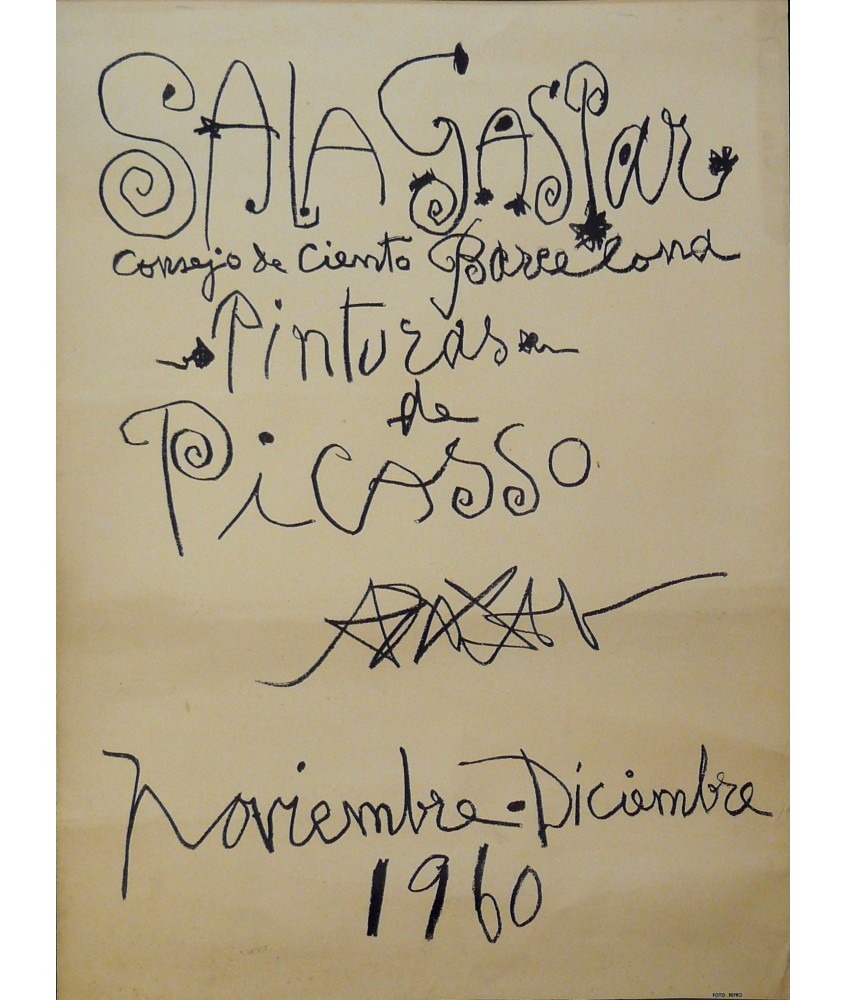 SALA GASPar
Consejo de Ciento Barcelona
Pinturas
de
Picasso
Noviembre-Diciembre
1960
FOTO REPRO